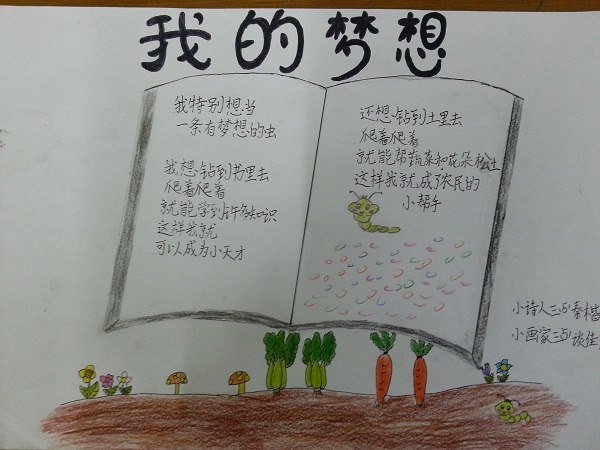 我的梦想
我特别想当
一条有梦想的虫
我想钻到书里去
爬着爬着
就能学到许多知识
这样我就
可以成为小天才
还想钻到土里去
爬着爬着
就能帮蔬菜和花朵松土
这样我就成了农民的
小帮手
小诗人三
小画家三